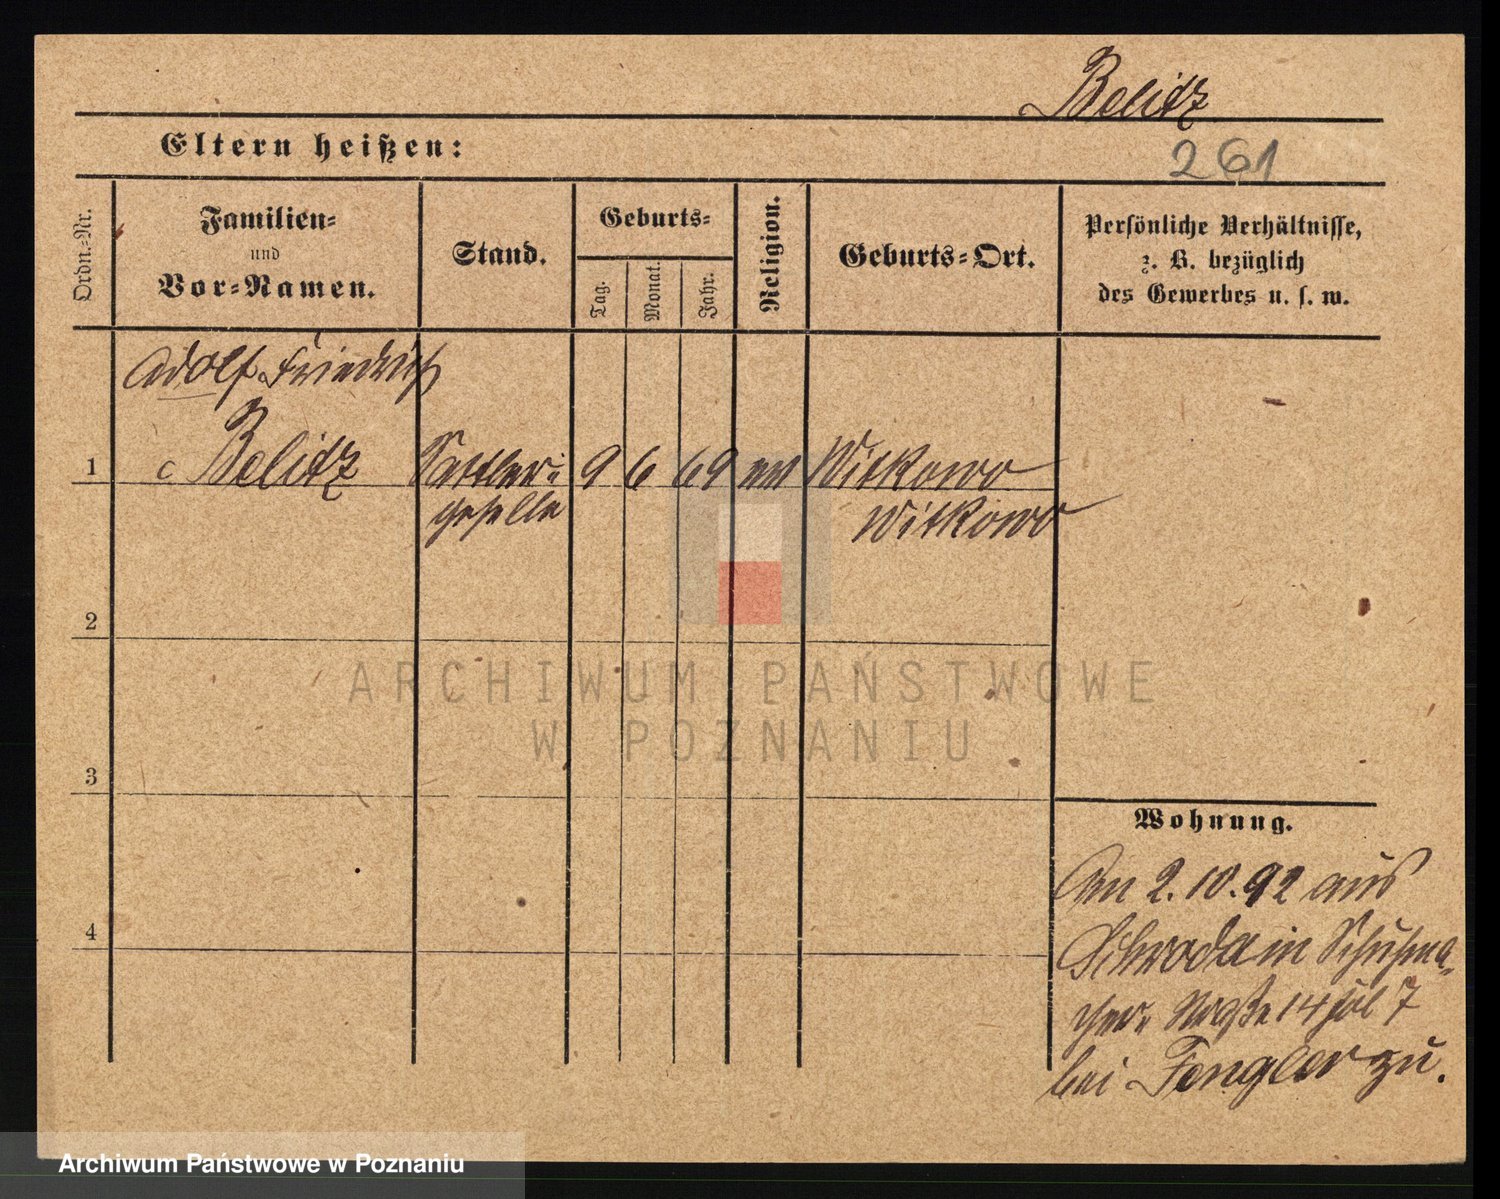 Belitz
261
Eltern heißen:
Ordn.-Nr.
Familien-
und
Vor-Namen.
Stand.
Geburts-
Tag.
Monat.
Jahr.
Religion.
Geburts-Ort.
Persönliche Verhältnisse,
z. B. bezüglich
des Gewerbes u. s. w.
Adolf Friedrich
1 Belitz Sattler- 9 6 69 ev Witkowo
geselle Witkowo
2
3
4
Wohnung.
Am 2.10.92 aus
Schroda in Schuhma-
cher- Straße 14 7
bei Fengler zu.
ARCHIWUM PAŃSTWOWE
W POZNANIU
Archiwum Państwowe w Poznaniu